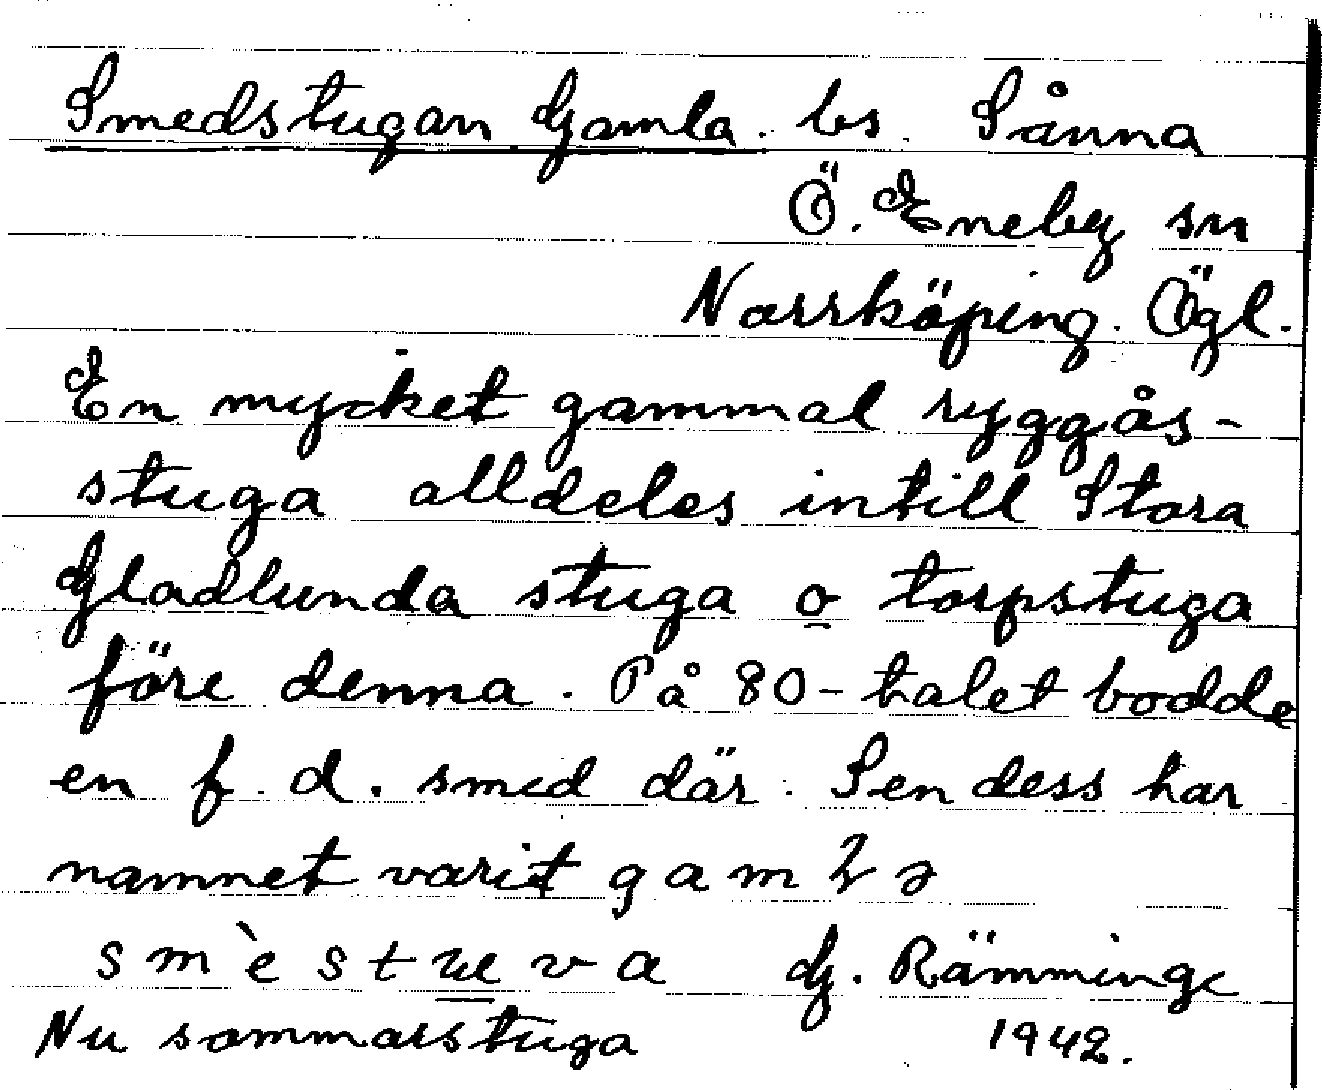 Smedstugan Gamla. bs. Sånna
Ö. Eneby sn
Norrköping. Ögl.
En mycket gammal ryggås-
stuga alldeles intill Stora
Gladlunda stuga o torpstuga
före denna. På 80-talet bodde
en f. d. smed där. Sen dess har
namnet varit gamɫə
smèstueva G. Rämminge
Nu sommarstuga 1942.